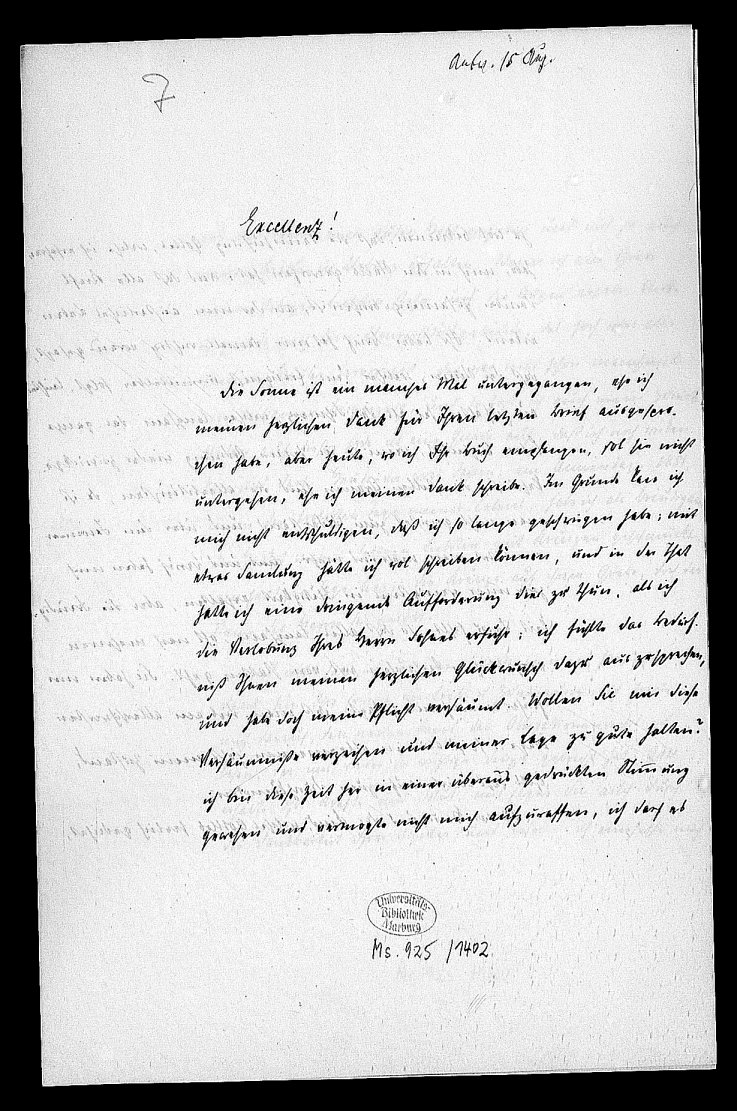 Antw. 15 Aug.
7
Excellenz!
Die Sonne ist ein manches Mal untergegangen, ehe ich
meinen herzlichen Dank für Ihren letzten Brief ausgespro-
chen habe, aber heute, wo ich Ihr Buch empfangen, sol sie nicht
untergehen, ehe ich meinen Dank schreibe. Im Grunde kan ich
mich nicht entschuldigen, daß ich so lange geschwigen habe; mit
etwas Samlung hätte ich wol schreiben können, und in der That
hatte ich eine dringende Aufforderung dies zu thun, als ich
die Verlobung Ihres Herrn Sohnes erfuhr: ich fühlte das Bedürf-
niß Ihnen meinen herzlichen Glückwunsch dazu auszusprechen,
und habe doch meine Pflicht versäumt. Wollen Sie mir diese
Versäumniße verzeihen und meiner Lage zu gute halten?
ich bin diese Zeit her in einer überaus gedrückten Stimmung
gewesen und vermogte nicht mich aufzuraffen, ich darf es
Universitäts-
Bibliothek
Marburg
Ms. 925 / 1402